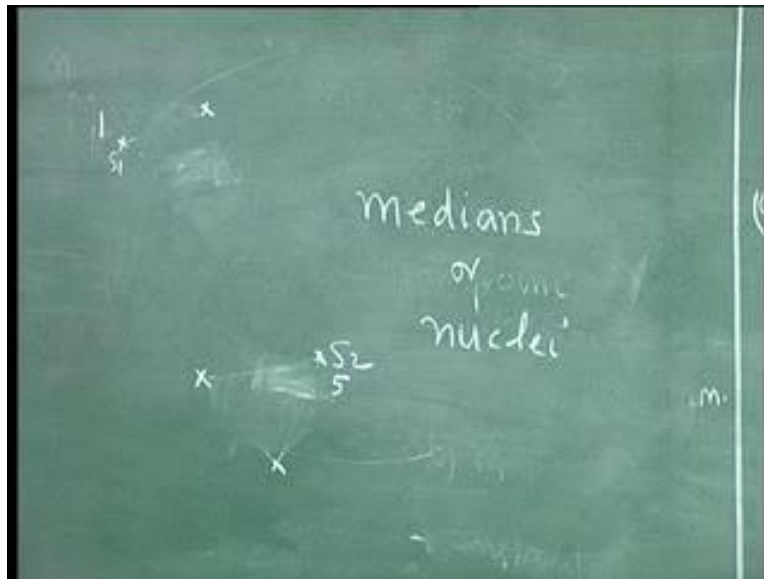 1
S1
Medians
of
nuclei
S2
5
m.